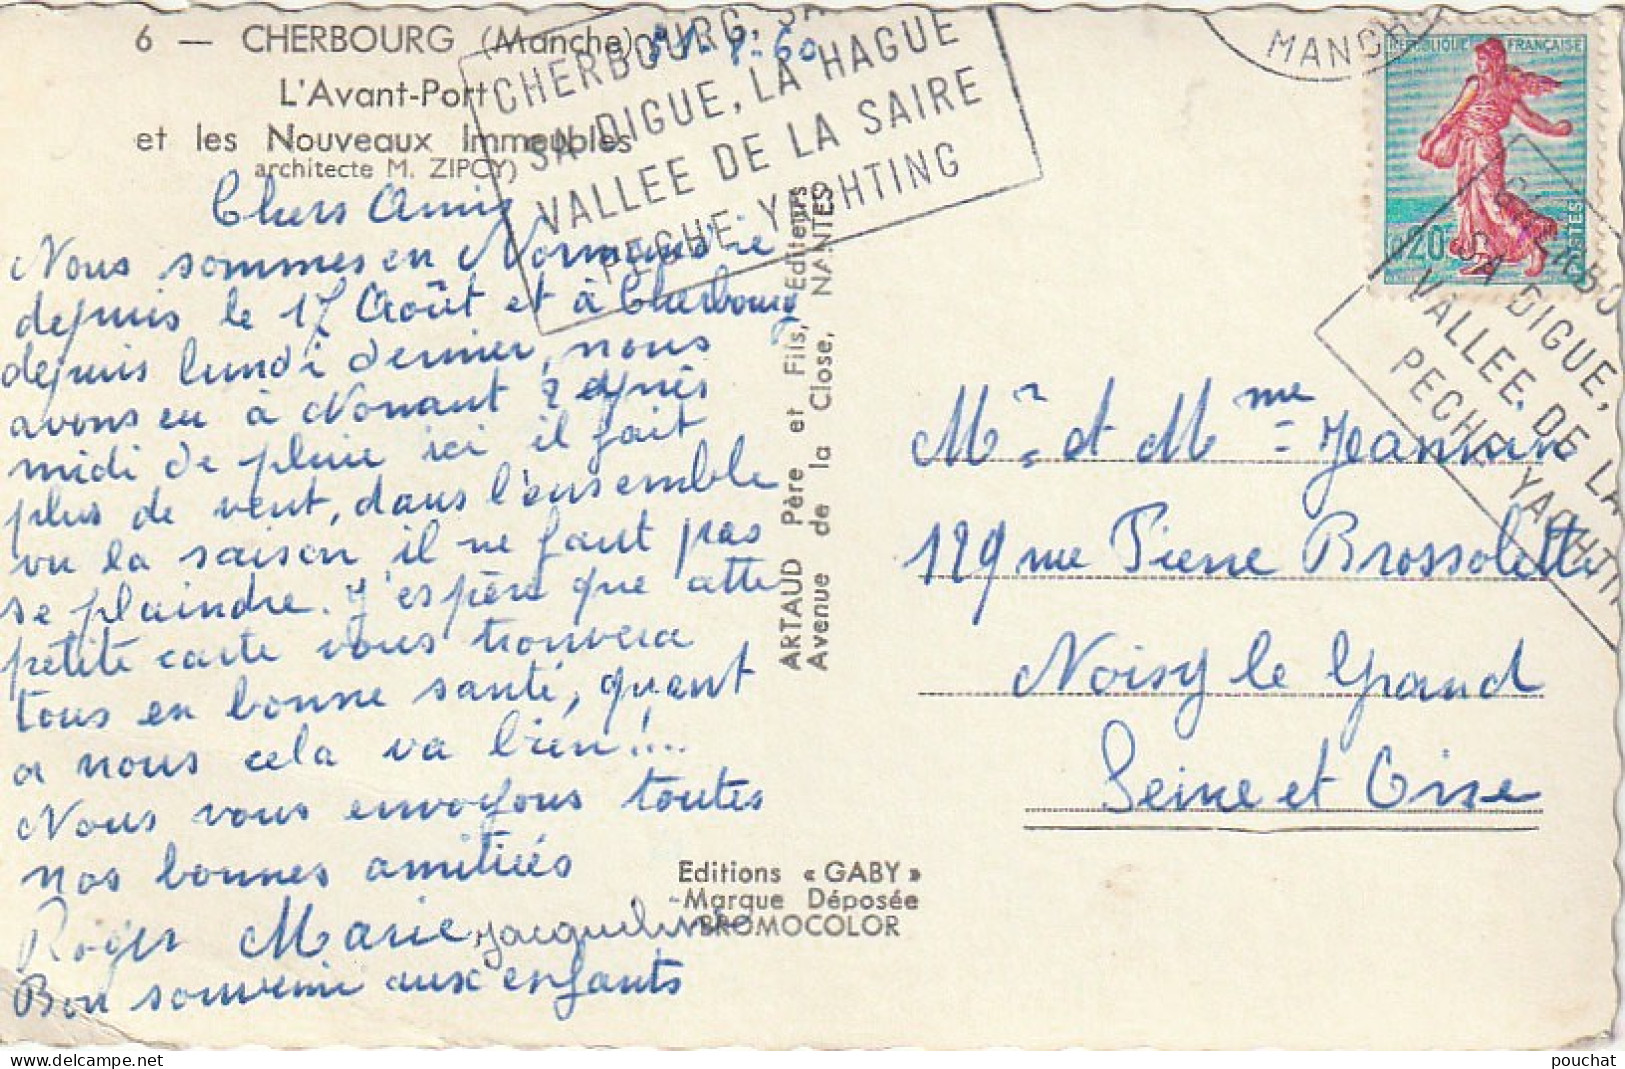 6 — CHERBOURG (Manche)
L'Avant-Port
et les Nouveaux Immeubles
architecte M. ZIPCY)
-60
CHERBOURG, SA
SA DIGUE, LA HAGUE
VALLEE DE LA SAIRE
PECHE YACHTING
MANCHE
REPUBLIQUE FRANÇAISE
0,20
POSTES
CHERBO
SA DIGUE,
VALLEE DE LA
PECHE YACHTIN
Chers Amis
Nous sommes en Normandie
depuis le 17 Août et à Cherbourg
depuis lundi dernier, nous
avons eu à Nonant 2 après
midi de pluie ici il fait
plus de vent, dans l'ensemble
vu la saison il ne faut pas
se plaindre. J'espère que cette
petite carte vous trouvera
tous en bonne santé, quant
a nous cela va bien!...
Nous vous envoyons toutes
nos bonnes amitiés
Roger Marie Jacqueline
Bon souvenir aux enfants
ARTAUD Père et Fils, Editeurs
Avenue de la Close, NANTES
Mr et Mme Jeannin
129 rue Pierre Brossolette
Noisy le Grand
Seine et Oise
Editions « GABY »
Marque Déposée
BROMOCOLOR
delcampe.net
pouchat